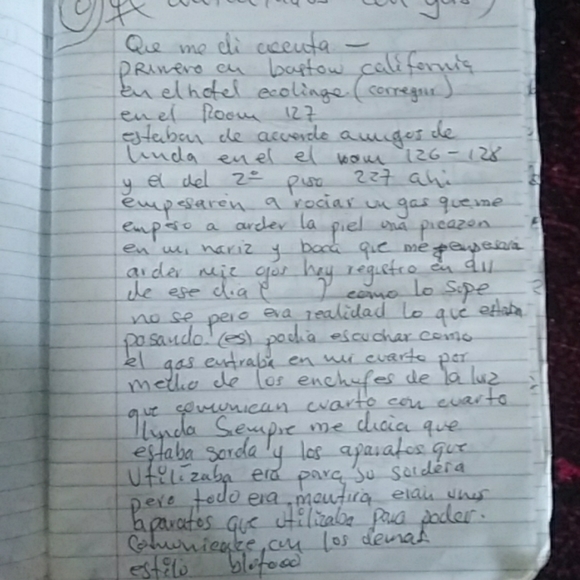 con gas)
Que me di ccenta —
PRIMERO en bastow california
En el hotel ecolinge (corregir)
en el Room 127
estaban de acuerdo amigos de
linda en el el room 126-128
y el del 2º piso 227 ahi
empesaron a rociar un gas que me
empeso a arder la piel una picazon
en mi nariz y boca que me
arder mis ojos hay registro en 911
de ese dia ( ) como lo supe
no se pero era realidad lo que estaba
posando. (es) podia escuchar como
el gas entraba en mi cuarto por
medio de los enchufes de la luz
que comunican cuarto con cuarto
linda Sempre me dicia que
estaba sorda y los aparatos que
Utilizaba era para su sordera
pero todo era mentira eran unos
aparatos que utilizaba para poder.
comunicarse con los demas
estilo